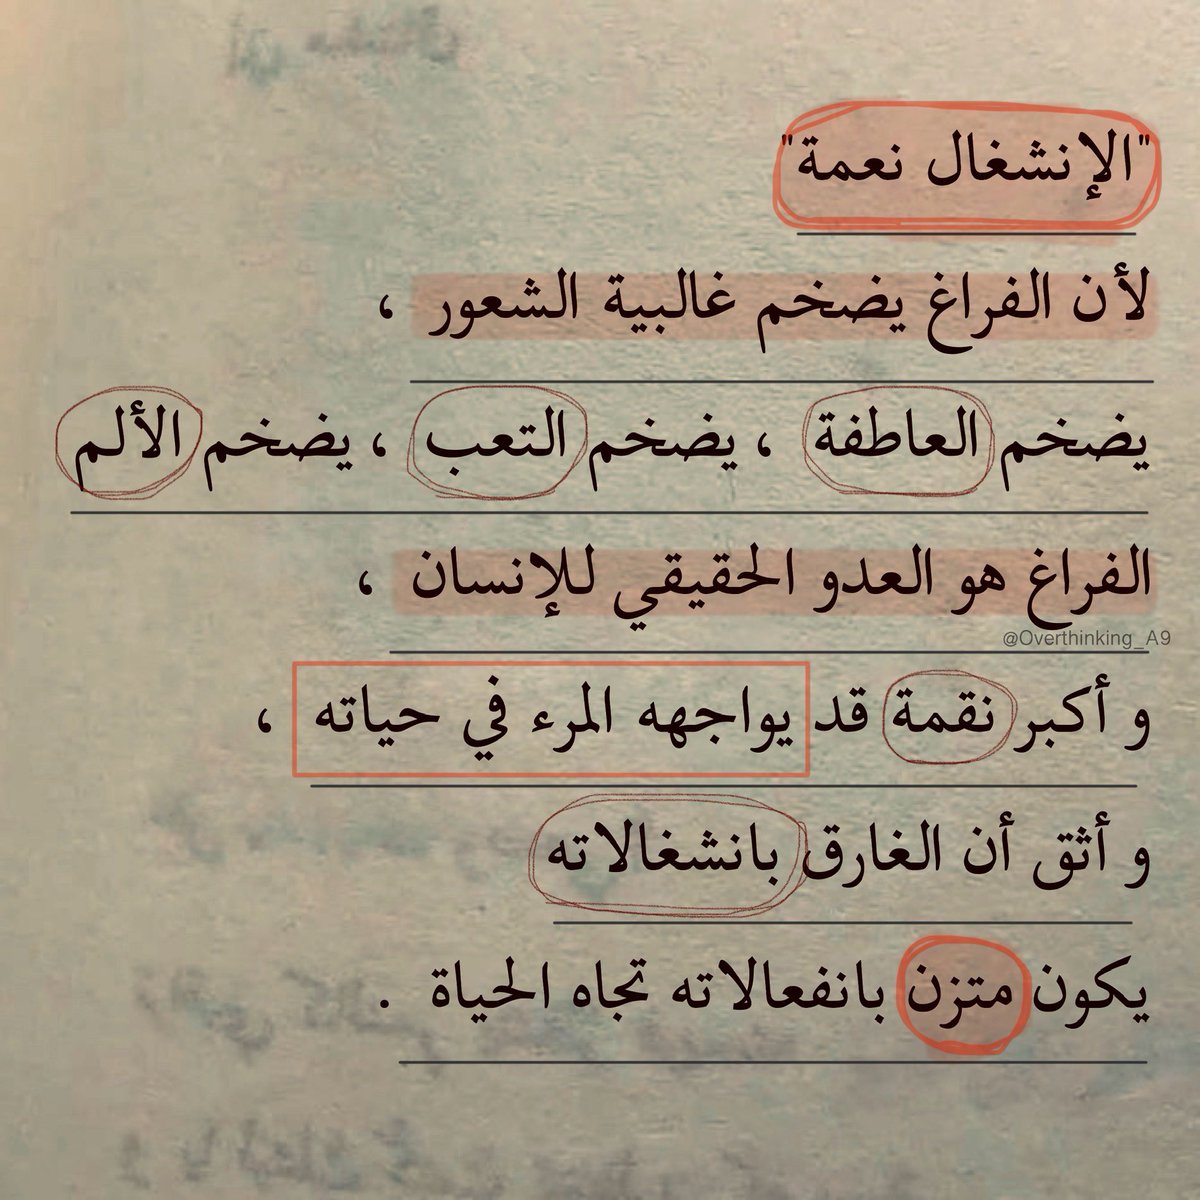 "الإنشغال نعمة"
لأن الفراغ يضخم غالبية الشعور ،
يضخم العاطفة ، يضخم التعب ، يضخم الألم
الفراغ هو العدو الحقيقي للإنسان ،
@Overthinking_A9
و أكبر نقمة قد يواجهه المرء في حياته ،
و أثق أن الغارق بانشغالاته
يكون متزن بانفعالاته تجاه الحياة .